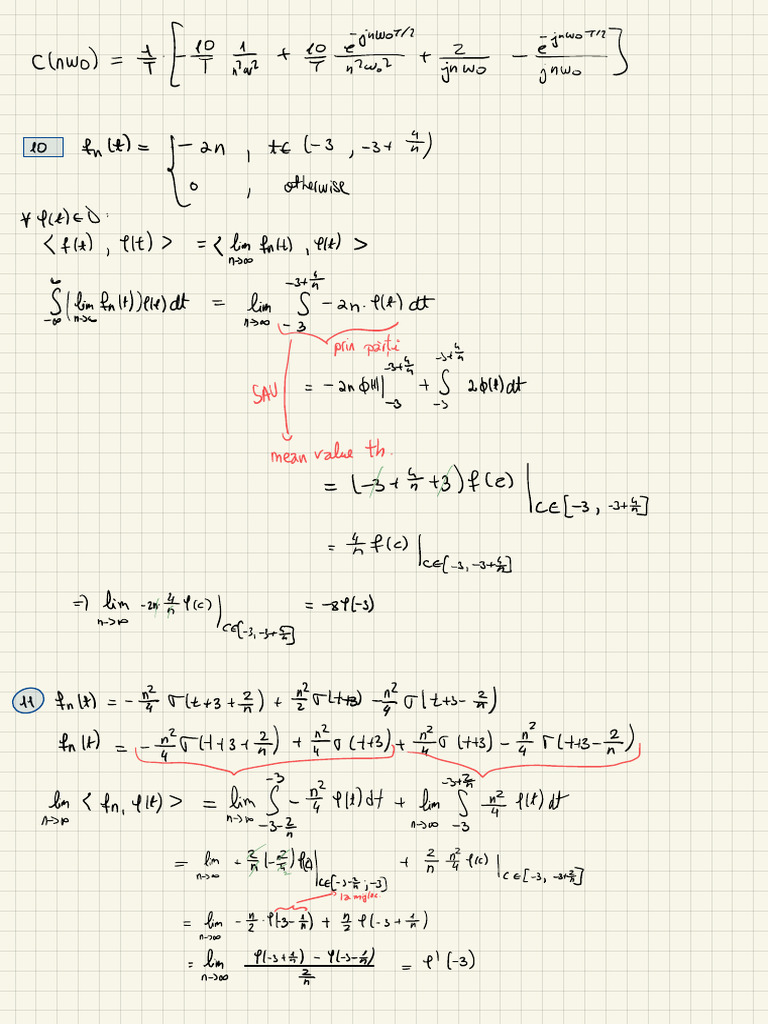 C(nω₀) = 1/T · [ - 10/T 1/n²ω² + 10/T e^(-jnω₀T/2)/n²ω₀² + 2/jnω₀ - e^(-jnω₀T/2)/jnω₀ ]
10 fₙ(t) = { -2n , t∈ (-3 , -3+ 4/n)
0 , otherwise
∀ φ(t)∈D:
< f(t) , φ(t) > = < lim n→∞ fₙ(t) , φ(t) >
∫_-∞^∞ (lim n→∞ fₙ(t)) φ(t) dt = lim n→∞ ∫_-3^(-3+4/n) -2n · φ(t) dt
prin părți
SAU = -2n ϕ(t) |_-3^(-3+4/n) + ∫_-3^(-3+4/n) 2ϕ(t) dt
mean value th.
= (-3 + 4/n + 3) f(c) | c∈[-3, -3+4/n]
= 4/n f(c) | c∈[-3, -3+4/n]
=> lim n→∞ -2n 4/n φ(c) | c∈[-3, -3+4/n] = -8φ(-3)
11 fₙ(t) = - n²/4 σ(t+3+ 2/n) + n²/2 σ(t+3) - n²/4 σ(t+3- 2/n)
fₙ(t) = - n²/4 σ(t+3+ 2/n) + n²/4 σ(t+3) + n²/4 σ(t+3) - n²/4 σ(t+3- 2/n)
lim n→∞ < fₙ, φ(t) > = lim n→∞ ∫_(-3-2/n)^-3 - n²/4 φ(t) dt + lim n→∞ ∫_-3^(-3+2/n) n²/4 φ(t) dt
= lim n→∞ + 2/n (-n²/4) φ(c) | c∈[-3-2/n, -3] + 2/n n²/4 φ(c) | c∈[-3, -3+2/n]
= lim n→∞ - n/2 · φ(-3- 1/n) + n/2 φ(-3+ 1/n)
= lim n→∞ (φ(-3+ 1/n) - φ(-3- 1/n)) / (2/n) = φ'(-3)